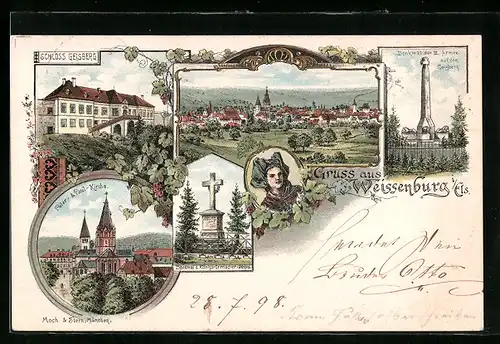 SCHLOSS GEISBERG
Denkmal der III. Armee
auf dem
Geisberg
Gruss aus
Weissenburg i/Els.
Peter- & Paul-Kirche.
Denkmal d. Königs-Grenadier-Regts.
Sendet Dein
Bruder Otto
28.7.98.
Moch & Stern, München.